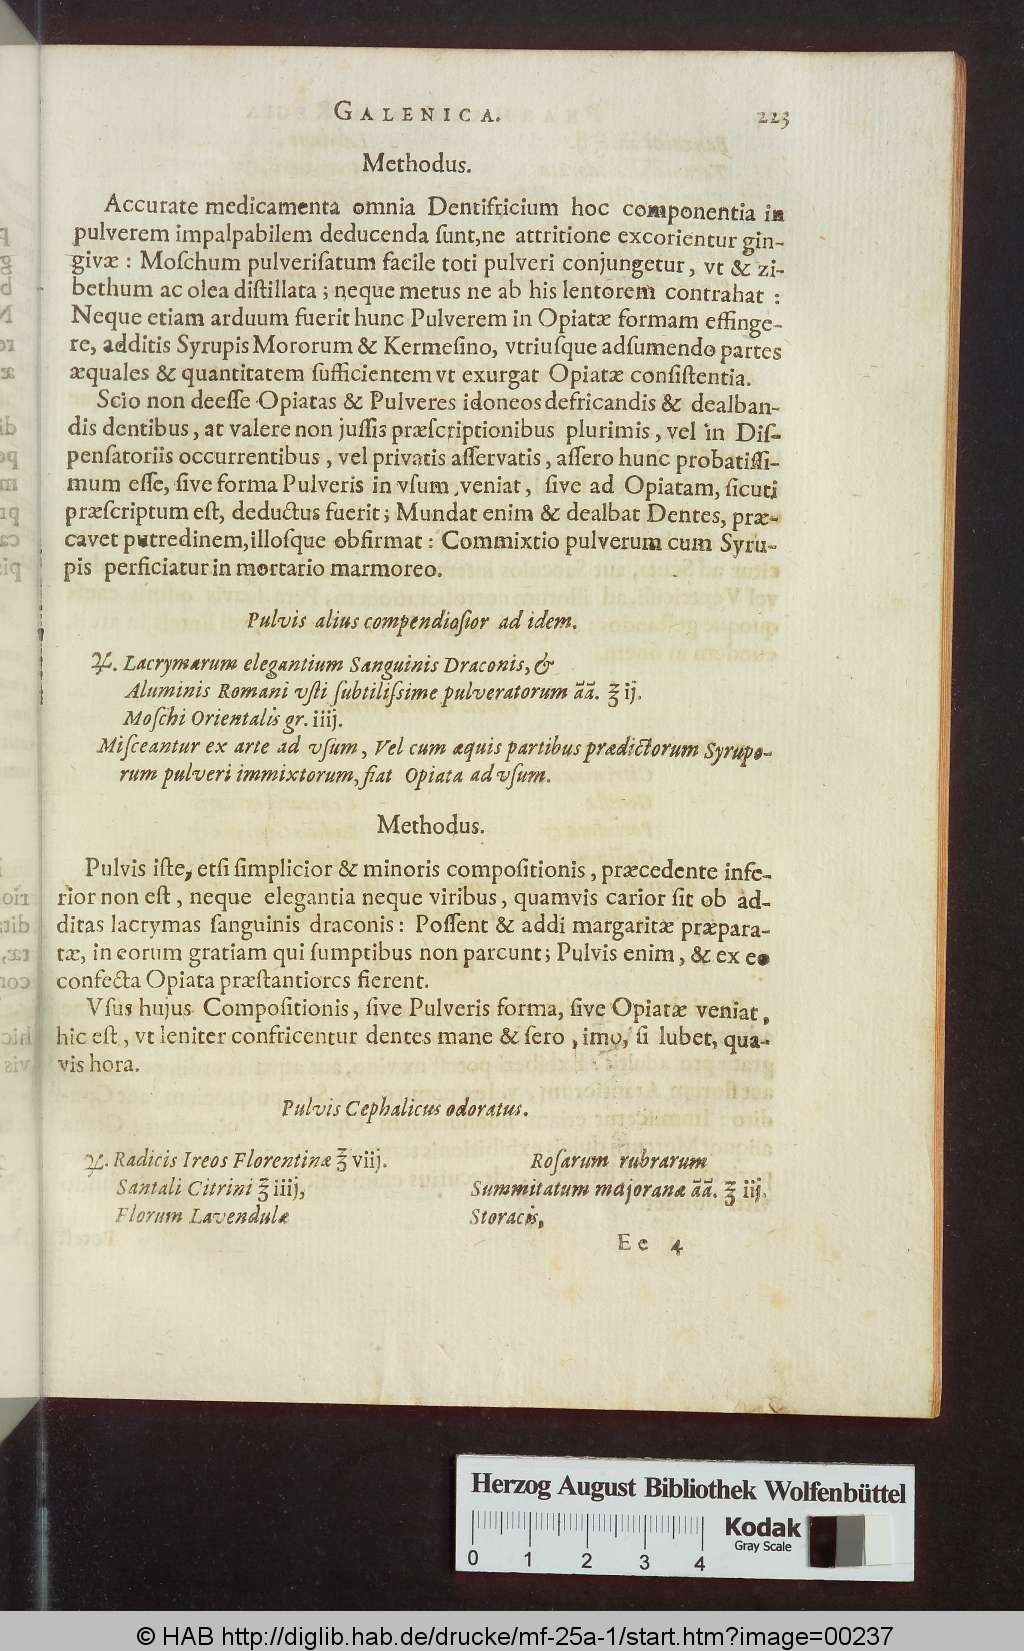 GALENICA. 223
Methodus.
Accurate medicamenta omnia Dentifricium hoc componentia in
pulverem impalpabilem deducenda ſunt,ne attritione excorientur gin-
givæ : Moſchum pulveriſatum facile toti pulveri conjungetur, vt & zi-
bethum ac olea diſtillata ; neque metus ne ab his lentorem contrahat :
Neque etiam arduum fuerit hunc Pulverem in Opiatæ formam effinge-
re, additis Syrupis Mororum & Kermeſino, vtriuſque adſumendo partes
æquales & quantitatem ſufficientem vt exurgat Opiatæ conſiſtentia.
Scio non deeſſe Opiatas & Pulveres idoneos defricandis & dealban-
dis dentibus, at valere non juſſis præſcriptionibus plurimis, vel in Diſ-
penſatoriis occurrentibus, vel privatis aſſervatis, aſſero hunc probatiſſi-
mum eſſe, ſive forma Pulveris in vſum veniat, ſive ad Opiatam, ſicuti
præſcriptum eſt, deductus fuerit; Mundat enim & dealbat Dentes, præ-
cavet putredinem,illoſque obfirmat : Commixtio pulverum cum Syru-
pis perficiatur in mortario marmoreo.
Pulvis alius compendioſior ad idem.
℞. Lacrymarum elegantium Sanguinis Draconis, &
Aluminis Romani vſti ſubtiliſsime pulveratorum āā. ℥ ij.
Moſchi Orientalis gr. iiij.
Miſceantur ex arte ad vſum, Vel cum æquis partibus prædictorum Syrupo-
rum pulveri immixtorum, fiat Opiata ad vſum.
Methodus.
Pulvis iſte, etſi ſimplicior & minoris compoſitionis, præcedente infe-
rior non eſt, neque elegantia neque viribus, quamvis carior ſit ob ad-
ditas lacrymas ſanguinis draconis: Poſſent & addi margaritæ præpara-
tæ, in eorum gratiam qui ſumptibus non parcunt; Pulvis enim, & ex eo
confecta Opiata præſtantiores fierent.
Vſus hujus Compoſitionis, ſive Pulveris forma, ſive Opiatæ veniat,
hic eſt, vt leniter confricentur dentes mane & ſero, imo, ſi lubet, qua-
vis hora.
Pulvis Cephalicus odoratus.
℞. Radicis Ireos Florentinæ ℥ viij.
Santali Citrini ℥ iiij,
Florum Lavendulæ
Roſarum rubrarum
Summitatum majoranæ āā. ℥ iij.
Storacis,
Ee 4
Herzog August Bibliothek Wolfenbüttel
Kodak
Gray Scale
0 1 2 3 4
© HAB http://diglib.hab.de/drucke/mf-25a-1/start.htm?image=00237